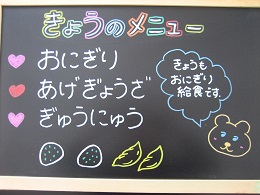 きょうのメニュー
おにぎり
あげぎょうざ
ぎゅうにゅう
きょうも
おにぎり
給食です。